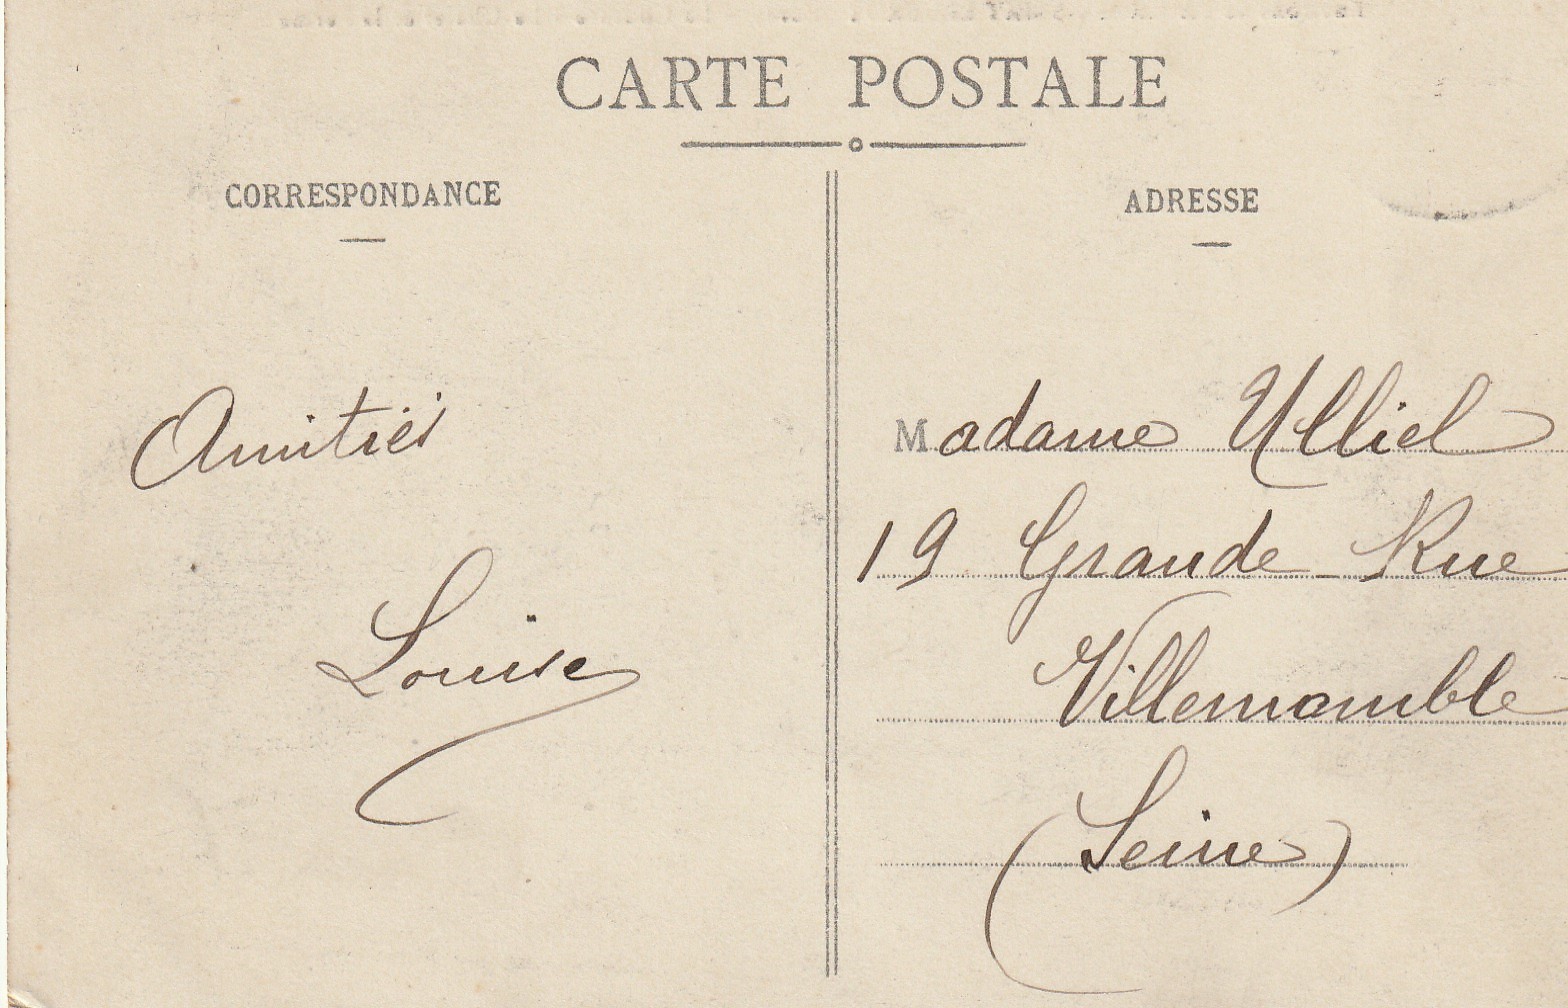 CARTE POSTALE
CORRESPONDANCE
ADRESSE
Amitiés
Louise
Madame Ulliel
19 Grande Rue
Villemomble
(Seine)